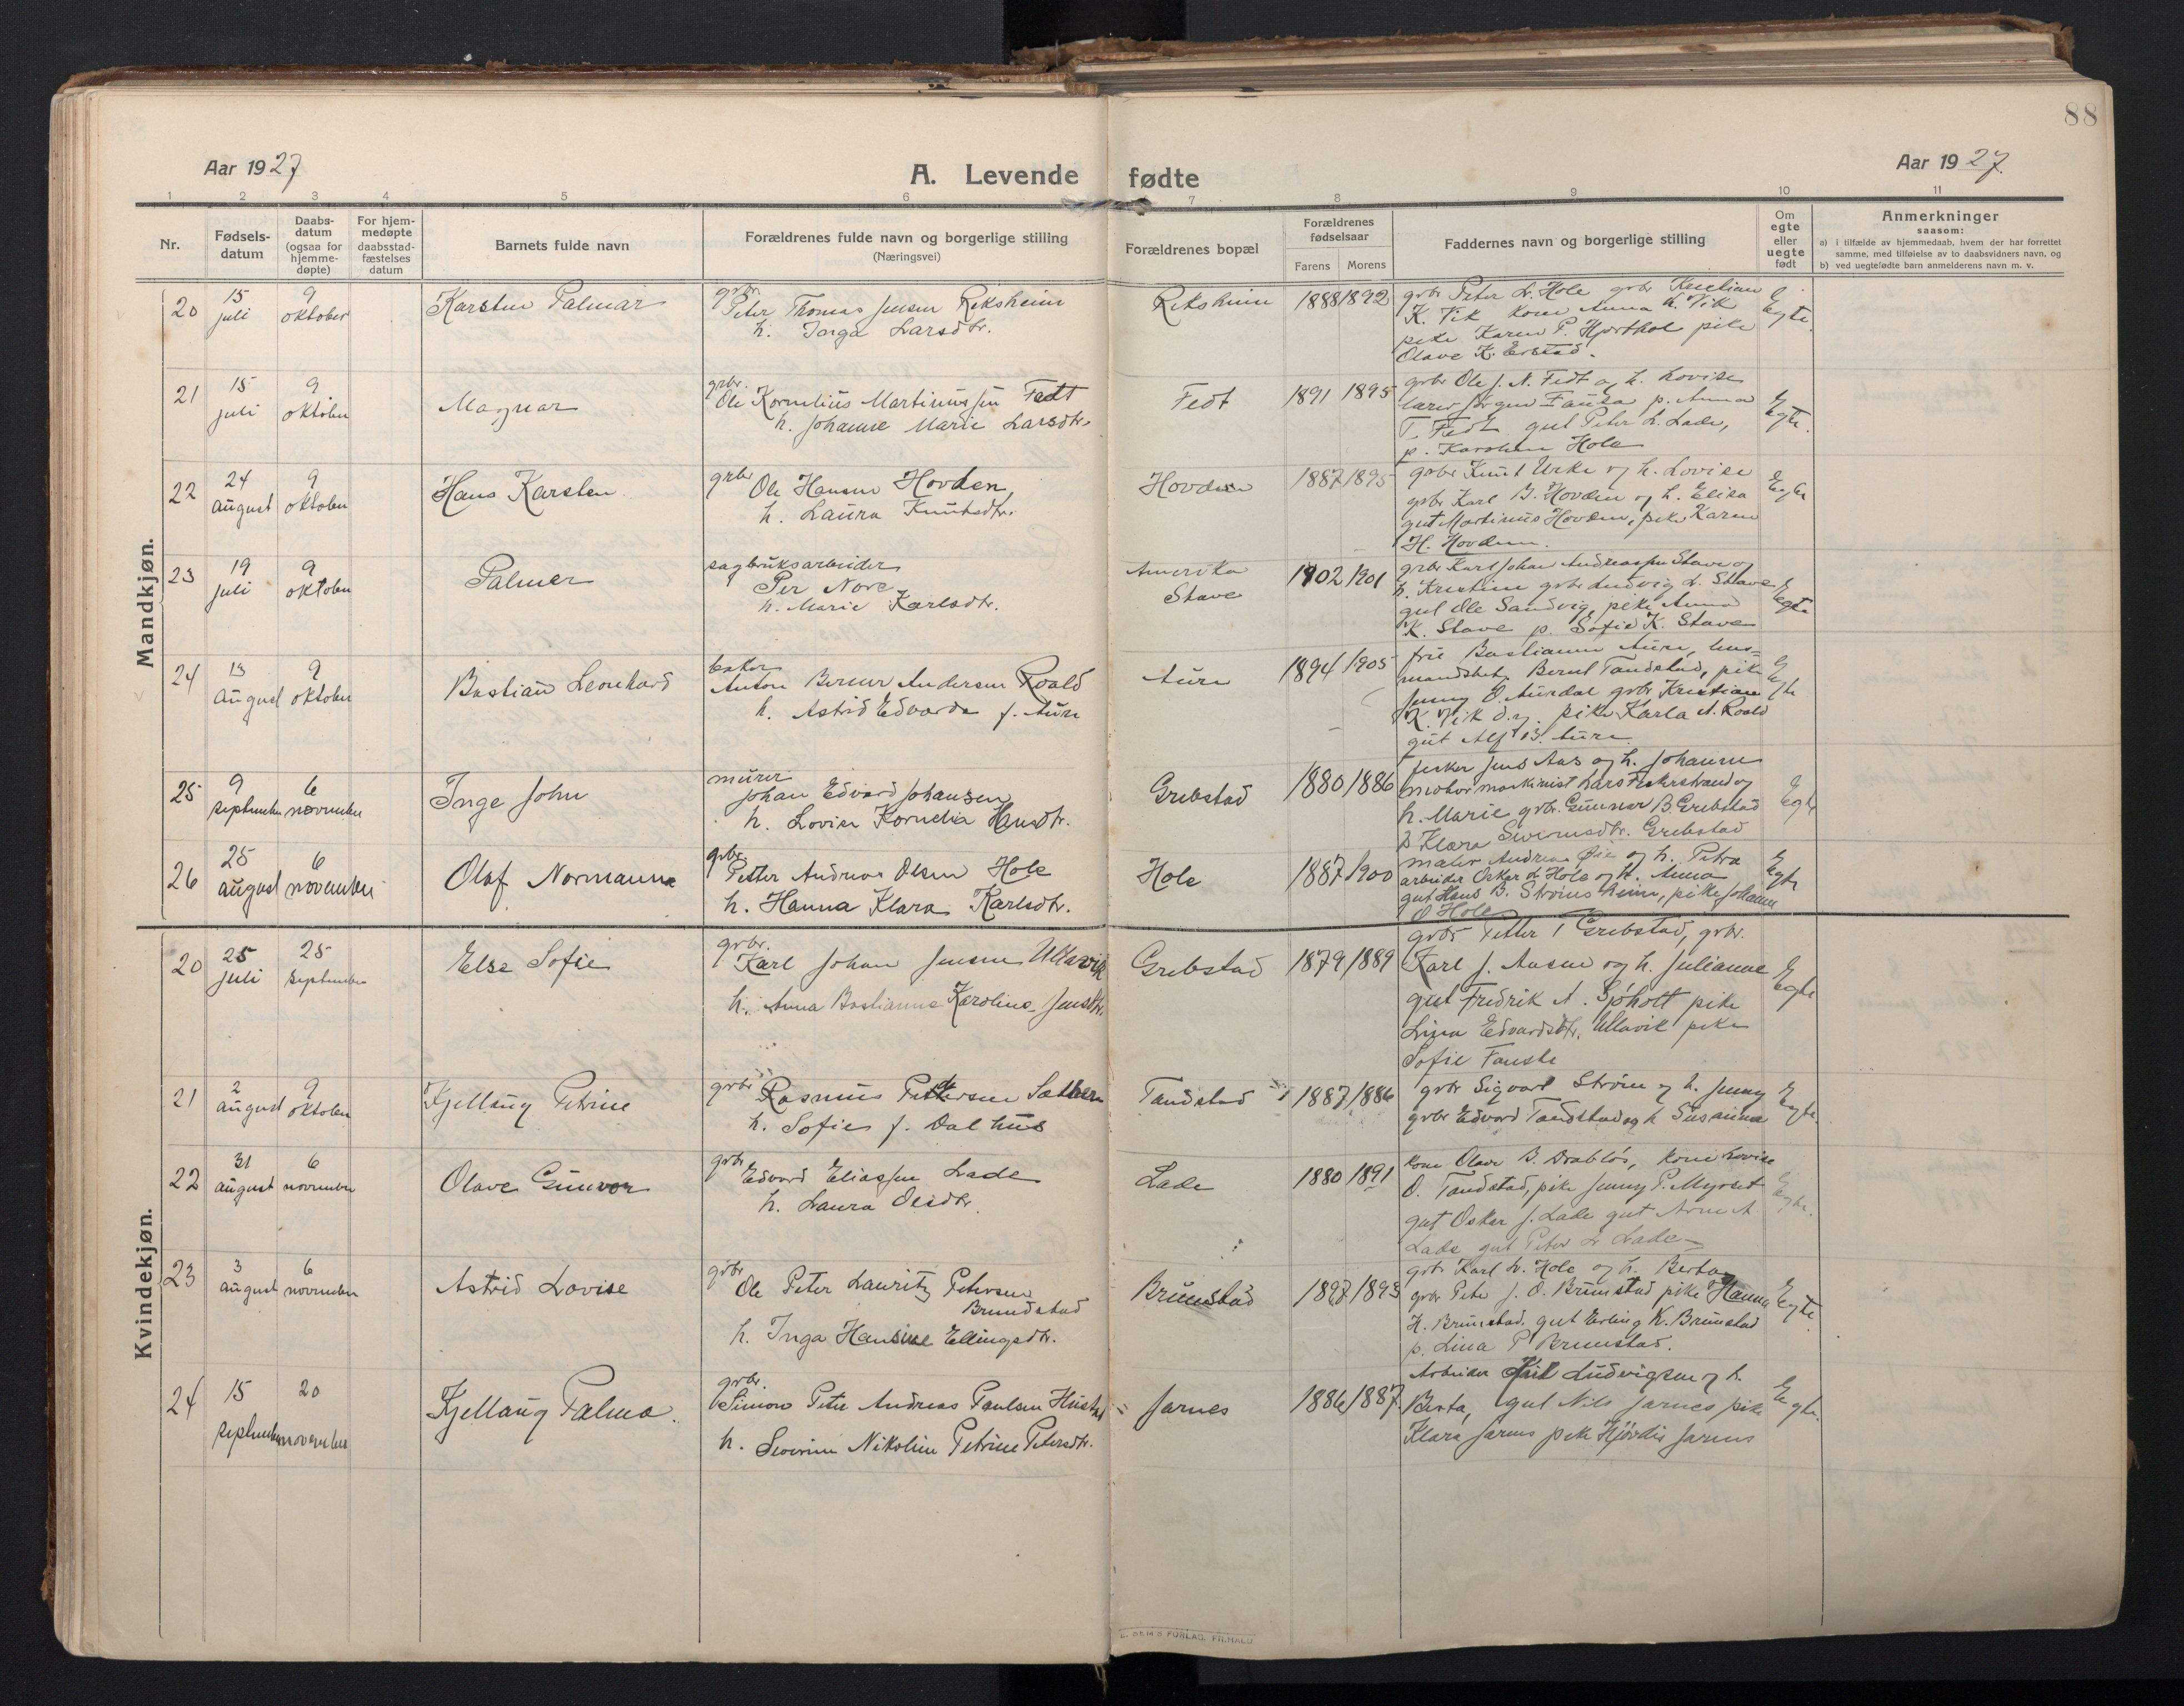 88
Aar 1927
A. Levende fødte
Aar 1927.
1 2 3 4 5 6 7 8 9 10 11
Nr.
Fødsels-
datum
Daabs-
datum
(ogsaa for
hjemme-
døpte)
For hjem-
medøpte
daabsstad-
fæstelses
datum
Barnets fulde navn
Forældrenes fulde navn og borgerlige stilling
(Næringsvei)
Forældrenes bopæl
Forældrenes
fødselsaar
Farens Morens
Faddernes navn og borgerlige stilling
Om
egte
eller
uegte
født
Anmerkninger
saasom:
a) i tilfælde av hjemmedaab, hvem der har forrettet
samme, med tilføielse av to daabsvidners navn, og
b) ved uegtefødte barn anmelderens navn m. v.
Mandkjøn.
20
15
juli
9
oktober
Karsten Palmar
grbr.
Peter Thomas Jensen Reksheim
h. Inga Larsdtr.
Reksheim
1888 1892
grbr Peter L. Hole grbr Kristian
K. Vik kone Anna L. Vik
pike Karen P. Hjorthol pike
Olave K. Erstad.
Egte.
21
15
juli
9
oktober
Magnar
grbr.
Ole Kornelius Martinussen Fedt
h. Johanne Marie Larsdtr.
Fedt
1891 1895
grbr Ole J. N. Fedt og h. Lovise
lærer Jørgen Fauska p. Anna
T. Fedt gut Peter L. Lade,
p. Karoline Hole
Egte.
22
24
august
9
oktober
Hans Karsten
grbr
Ole Hansen Hovden
h. Laura Knutsdtr.
Hovden
1887 1895
grbr Knut Urke og h. Lovise
grbr Karl B. Hovden og h. Elisa
gut Martinus Hovden, pike Karen
H. Hovden.
Egte
23
19
juli
9
oktober
Palmer
sagbruksarbeider
Per Nore
h. Marie Karlsdtr.
Amerika
Stave
1902 1901
grbr Karl Johan Andreassen Stave og
h. Kristine grbr Ludvig L. Stave
gut Ole Sandvig, pike Anna
K. Stave p. Sofie K. Stave
Egte
24
13
august
9
oktober
Bastian Leonhard
baker
Anton Berner Andersen Roald
h. Astrid Edvarda f. Aure
Aure
1894 1905
frü Bastianne Aure, hus-
mandsbet. Bernt Tandstad, pike
Jenny O. Aurdal grbr Kristian
K. Vik d.y. pike Karla A. Roald
gut Alf B. Aure
Egte
25
9
september
6
november
Inge John
murer
Johan Edvard Johansen
h. Lovise Kornelia Hansdtr.
Grebstad
1880 1886
fisker Jens Aas og h. Johanne
motormaskinist Lars Fiskerstrand og
h. Marie grbr. Gunnar B. Grebstad
p Klara Sverinsdtr. Grebstad
Egte
26
25
august
6
november
Olaf Normann
grbr
Petter Andreas Olsen Hole
h. Hanna Klara Karlsdtr.
Hole
1887 1900
maler Andreas Øie og h. Petra
arbeider Oskar L Hole og h. Anna
gut Hans B. Strømsheim, pike Johanne
O Hole
Egte
Kvindekjøn.
20
25
juli
25
september
Else Sofie
grbr.
Karl Johan Jensen Ullavik
h. Anna Bastianna Karoline Jensdtr.
Grebstad
1879 1889
grbr Petter T Grebstad, grbr.
Karl J. Aasen og h. Julianne
gut Fredrik A. Sjøholt pike
Lina Edvardsdtr. Ullavik pike
Sofie Fauske
Egte
21
2
august
9
oktober
Kjellaug Petrine
grbr
Rasmus Pettersen Sætbern
h. Sofie f. Dalhus
Tandstad
1887 1886
grbr Sigvart Strøm og h. Jenny
grbr Edvard Tandstad og h Susanna
Egte.
22
31
august
6
november
Olave Gunvor
grbr
Edvard Eliassen Lade
h. Laura Olesdtr.
Lade
1880 1891
kone Olave B. Drabløs, kone Lovise
O. Tandstad, pike Jenny P. Myrset
gut Oskar J. Lade gut Arne A.
Lade gut Peter L Lade
Egte.
23
3
august
6
november
Astrid Lovise
grbr
Ole Peter Lauritz Petersen
Brunstad
h. Inga Hansine Ellingsdtr.
Brunstad
1897 1893
grbr Karl L. Hole og h. Berta
grbr Peter J. O. Brunstad pike Hanna
K. Brunstad, gut Erling K. Brunstad
p. Lina P Brunstad.
Egte
24
15
september
20
november
Kjellaug Palma.
grbr.
Simon Peter Andreas Paulsen Hustad
h. Severine Nikoline Petrine Petersdtr.
Jarnes
1886 1887
Arbeider Ludvigsen og h.
Berta, gut Nils Jarnes pike
Klara Jarnes pike Hjørdis Jarnes
Egte.